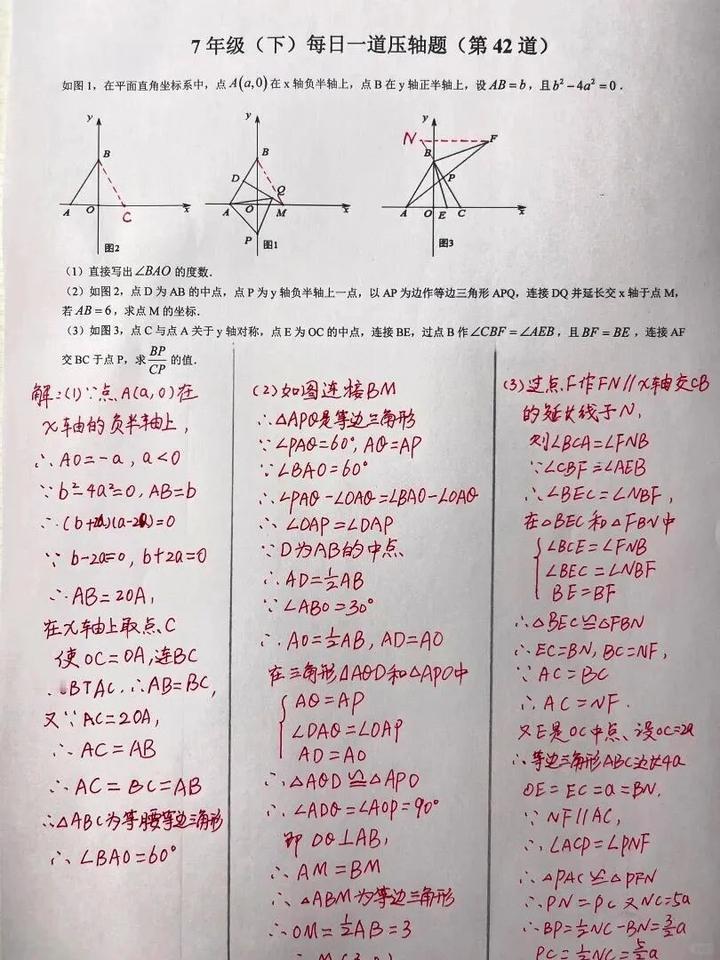 7年级（下）每日一道压轴题（第42道）
如图1，在平面直角坐标系中，点A(a,0)在x轴负半轴上，点B在y轴正半轴上，设AB=b，且b²-4a²=0．
y
B
A
O
C
x
图2
y
B
D
Q
A
O
M
x
P
图1
y
N
F
B
P
A
O
E
C
x
图3
（1）直接写出∠BAO的度数．
（2）如图2，点D为AB的中点，点P为y轴负半轴上一点，以AP为边作等边三角形APQ，连接DQ并延长交x轴于点M，
若AB=6，求点M的坐标．
（3）如图3，点C与点A关于y轴对称，点E为OC的中点，连接BE，过点B作∠CBF=∠AEB，且BF=BE，连接AF
交BC于点P，求BP/CP的值．
解：(1)∵点A(a,0)在
x轴的负半轴上，
∴AO=-a，a<0
∵b²-4a²=0，AB=b
∴(b+2a)(a-2)=0
∵b-2a=0，b+2a=0
∴AB=2OA，
在x轴上取点C
使OC=OA，连BC
BTAC，∴AB=BC，
又∵AC=2OA，
∴AC=AB
∴AC=BC=AB
∴△ABC为等腰等边三角形
∴∠BAO=60°
(2)如图连接BM
∴△APQ是等边三角形
∵∠PAQ=60°，AQ=AP
∵∠BAO=60°
∴∠PAQ-∠OAQ=∠BAO-∠OAQ
∴∠OAP=∠DAP
∵D为AB的中点
∴AD=½AB
∵∠ABO=30°
∴AO=½AB，AD=AO
在三角形△AQD和△APO中
AQ=AP
∠DAQ=∠OAP
AD=AO
∴△AQD≌△APO
∴∠ADQ=∠AOP=90°
即DQ⊥AB，
∴AM=BM
∴△ABM为等边三角形
∴OM=½AB=3
(3)过点F作FN//x轴交CB
的延长线于N，
则∠BCA=∠FNB
∵∠CBF=∠AEB
∴∠BEC=∠NBF，
在△BEC和△FBN中
∠BCE=∠FNB
∠BEC=∠NBF
BE=BF
∴△BEC≌△FBN
∴EC=BN，BC=NF，
∵AC=BC
∴AC=NF．
又E是OC中点、设OC=2a
∴等边三角形ABC边长4a
OE=EC=a=BN，
∵NF//AC，
∴∠ACP=∠PNF
∴△PAC≌△PFN
∴PN=PC 又NC=5a
∴BP=½NC-BN=3/2a
PC=½NC=5/2a